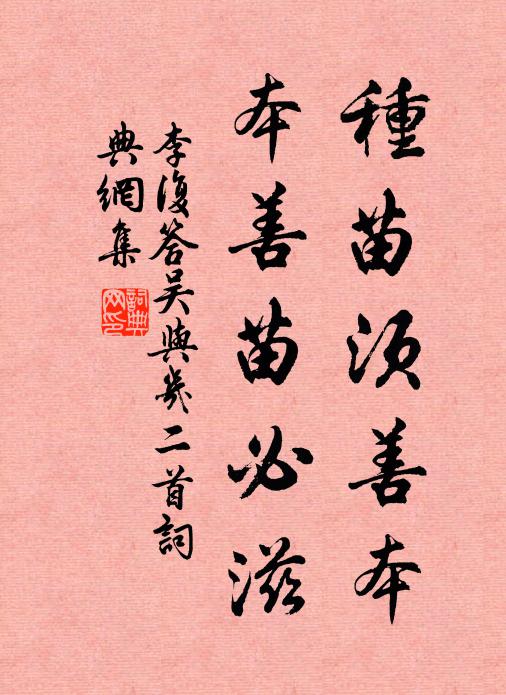 種苗須善本
本善苗必滋
李復答吳與幾二首詞
典網集
詞典网印